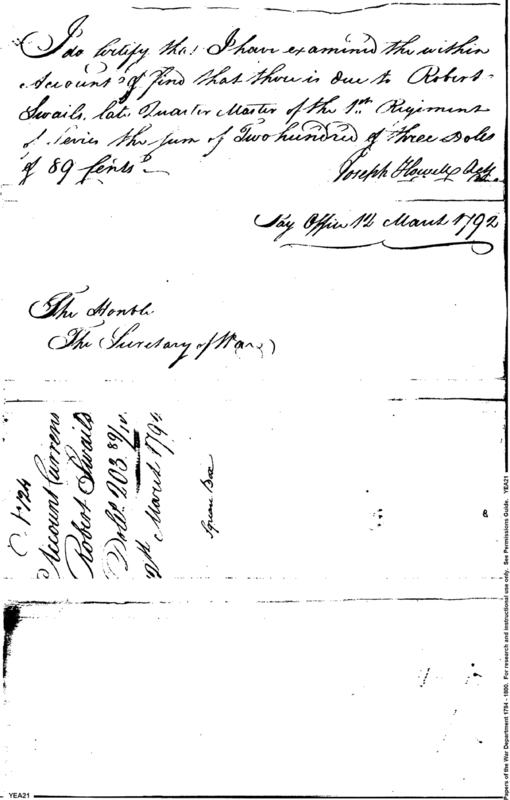 I do Certify that I have examined the within
Account & find that there is due to Robert
Swails, late Quarter Master of the 1st Regiment
of Levies the sum of Two hundred & three Dols
& 89 Cents
Joseph Howell Actt.
Pay Office 12 March 1792
The Honble
The Secretary of War
Account Currens
Robert Swails
Dols. 203. 89/
March 1792
Square Box
Papers of the War Department 1784 - 1800. For research and instructional use only. See Permissions Guide. YEA21
YEA21